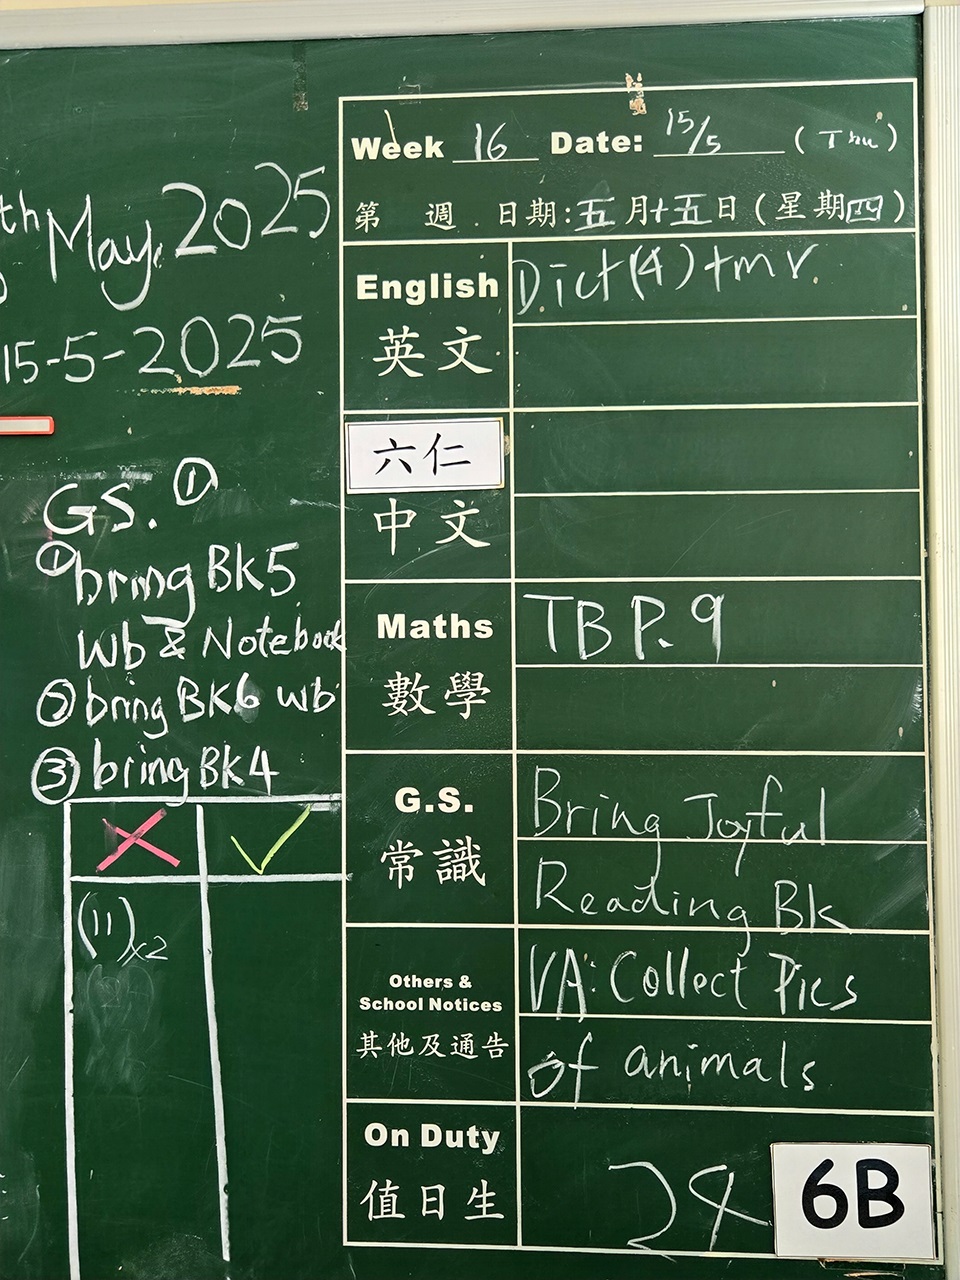 th May, 2025
15-5-2025
GS. ①
① bring BK5
Wb & Notebook
② bring BK6 wb
③ bring BK4
(11)x2
Week 16 Date: 15/5 (Thu)
第 週 日期:五月十五日(星期四)
English Dict(4) tmr
英文
六仁
中文
Maths TB P.9
數學
G.S. Bring Joyful
常識 Reading Bk
Others & School Notices VA: Collect Pics
其他及通告 of animals
On Duty
值日生 24
6B